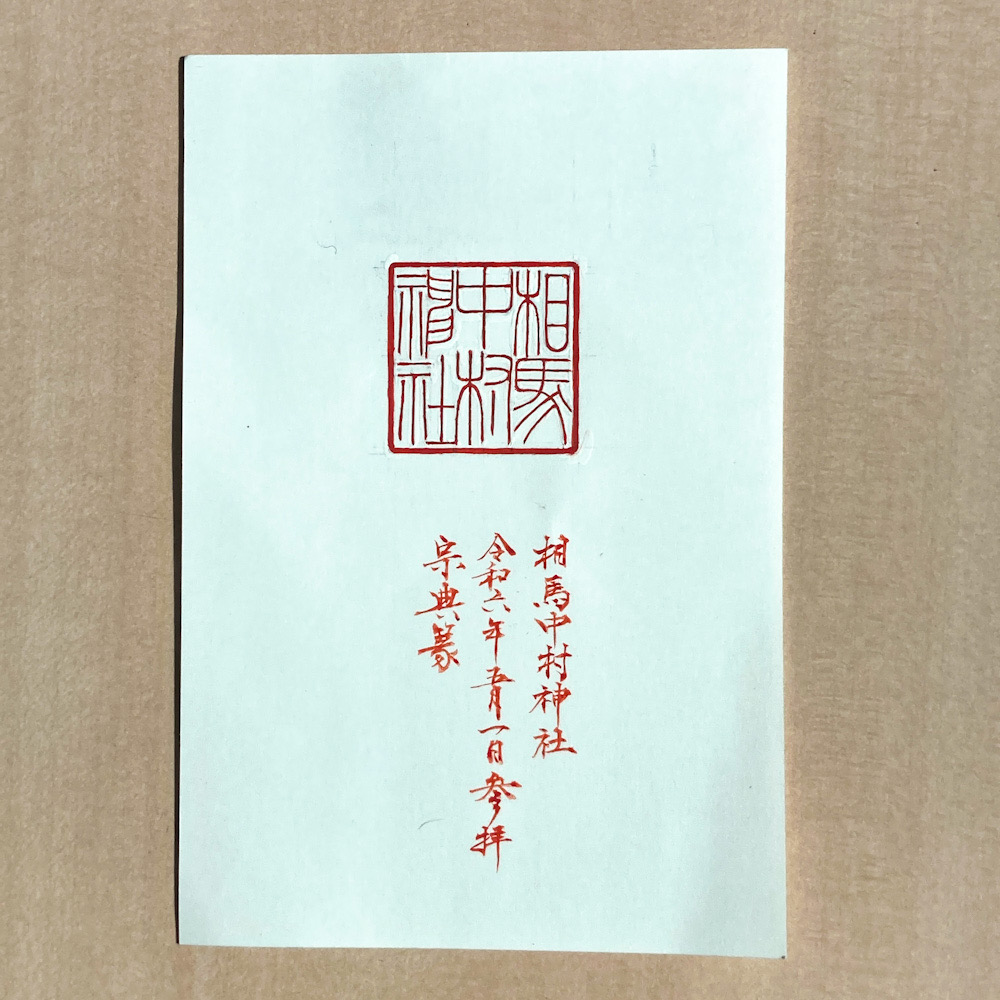 相馬
中村
神社
相馬中村神社
令和六年五月一日参拝
宗典篆